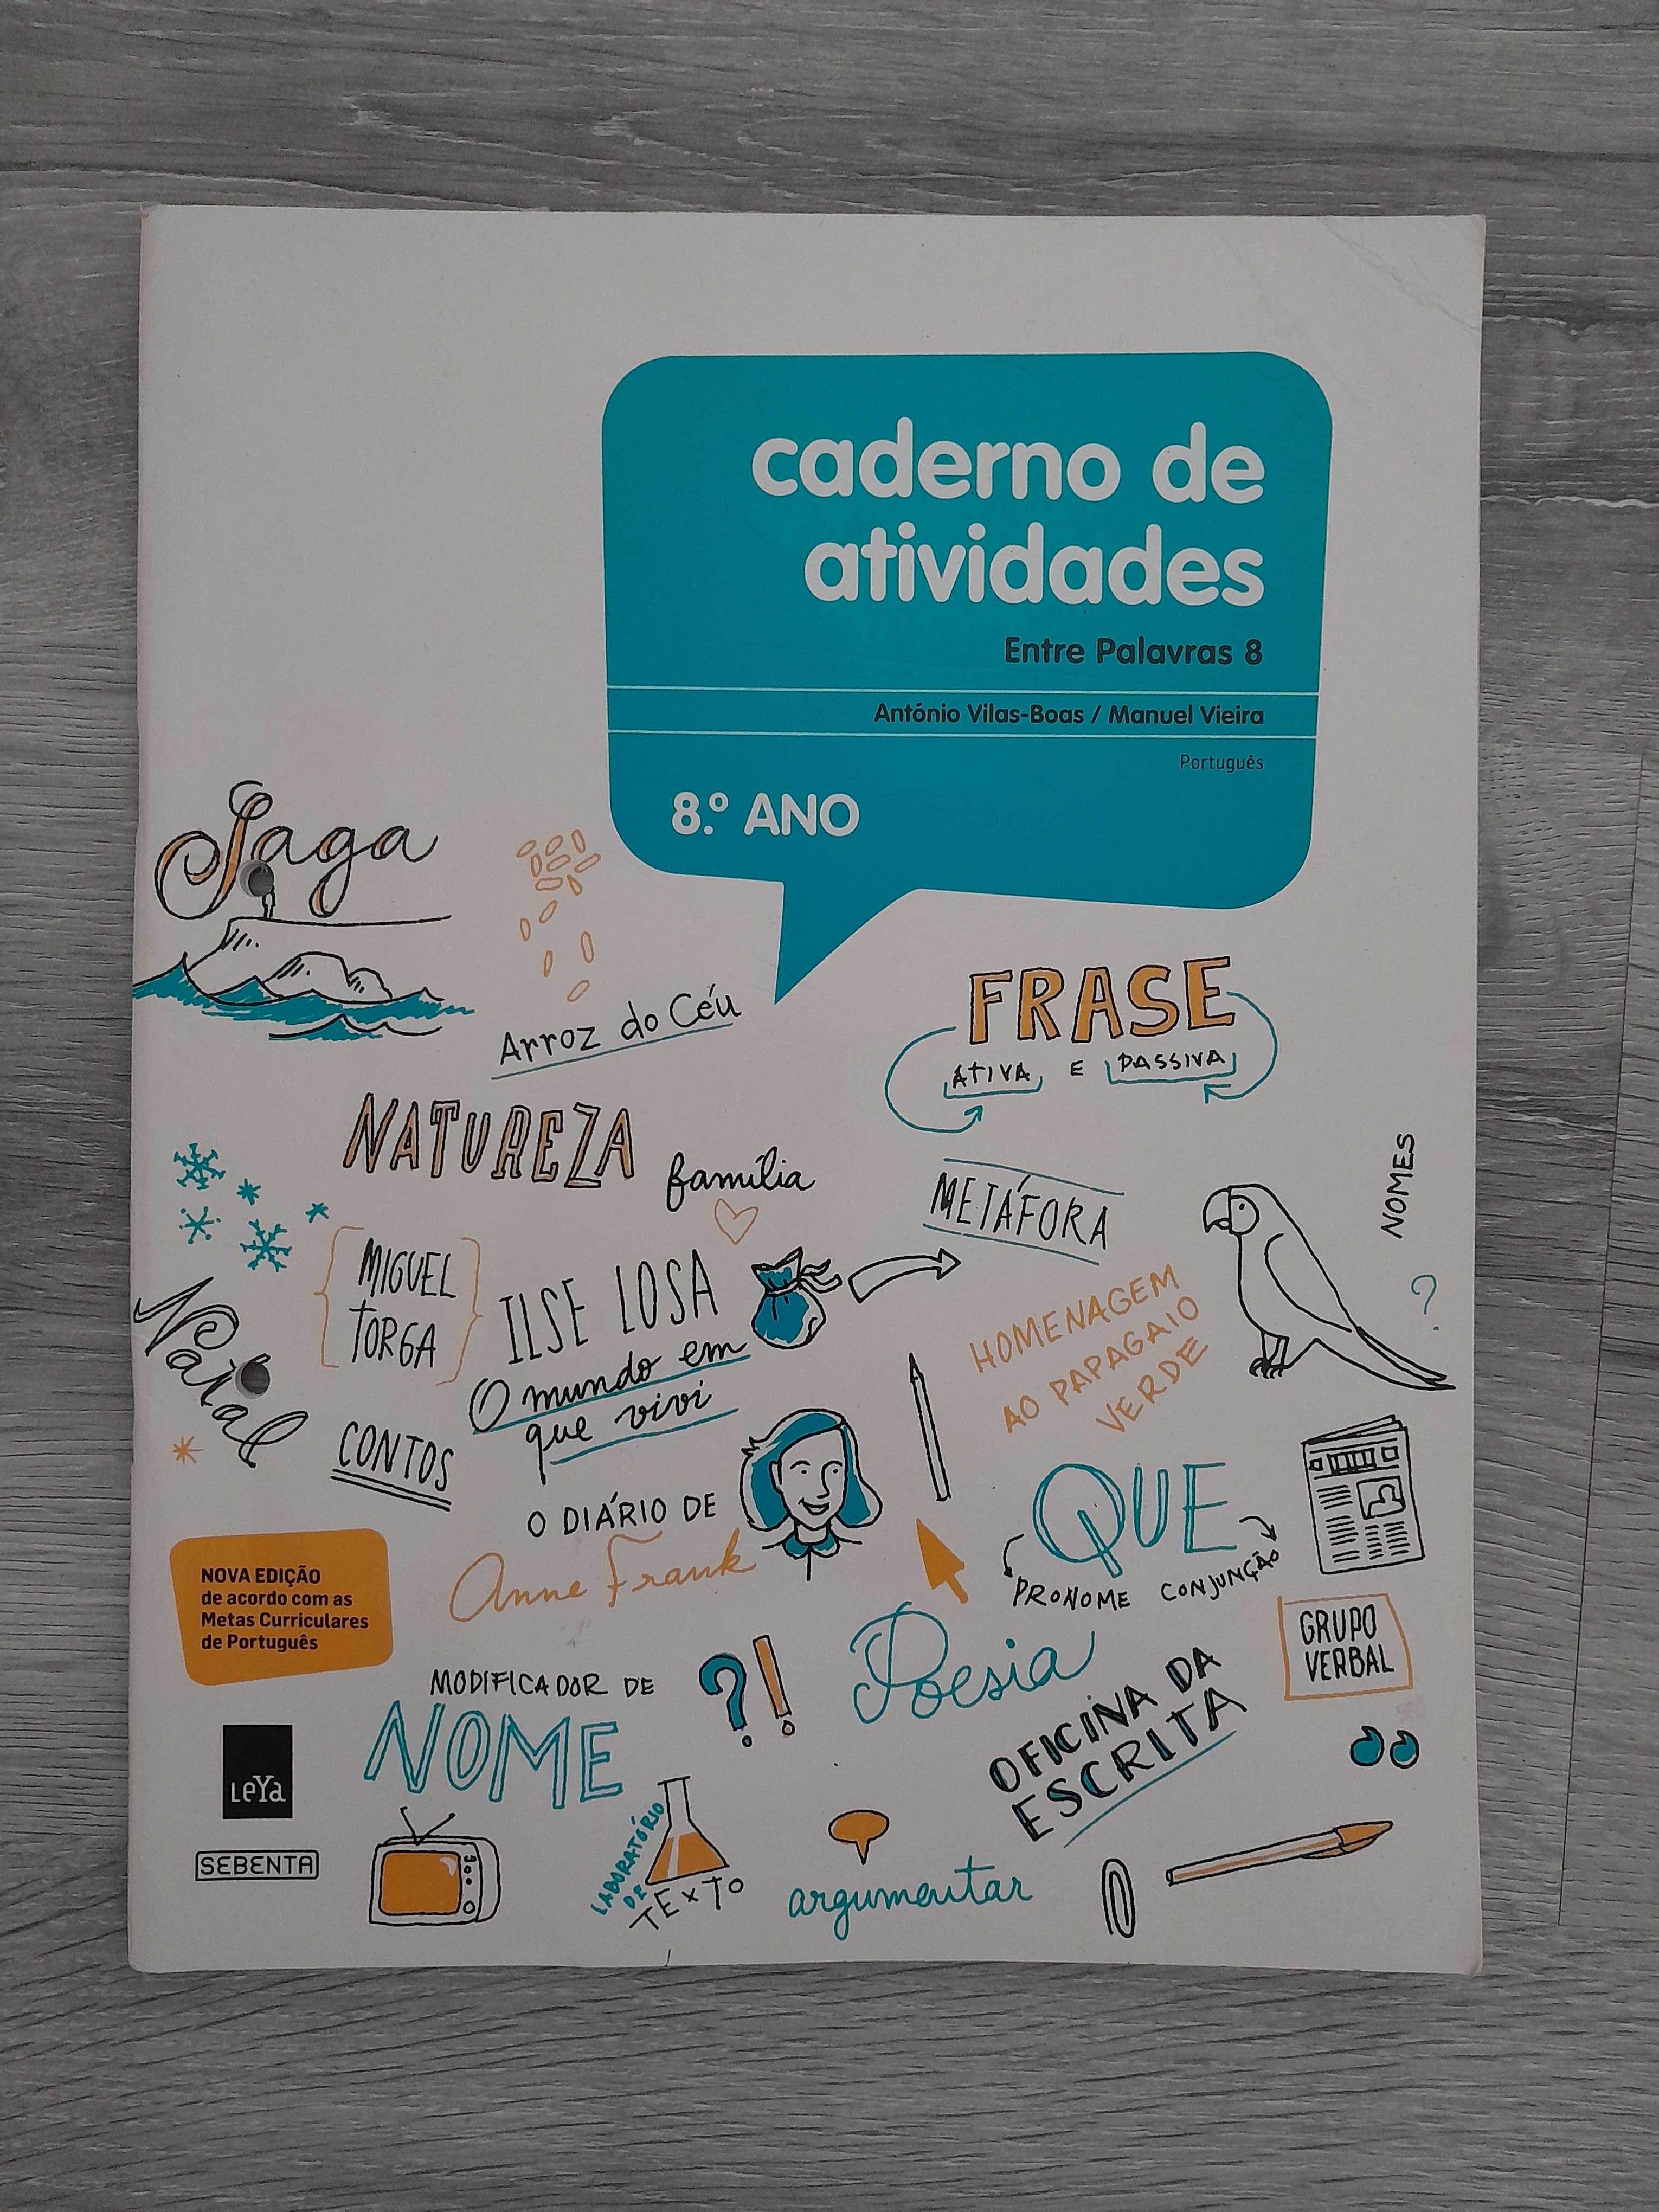 caderno de
atividades
Entre Palavras 8
António Vilas-Boas / Manuel Vieira
Português
8.º ANO
Saga
Arroz do Céu
FRASE
ATIVA E PASSIVA
NATUREZA
família
METÁFORA
NOMES
MIGUEL
TORGA
ILSE LOSA
O mundo em
que vivi
HOMENAGEM
AO PAPAGAIO
VERDE
?
Natal
CONTOS
O DIÁRIO DE
Anne Frank
QUE
PRONOME CONJUNÇÃO
NOVA EDIÇÃO
de acordo com as
Metas Curriculares
de Português
GRUPO
VERBAL
MODIFICADOR DE
NOME
?!
Poesia
OFICINA DA
ESCRITA
LeYa
SEBENTA
LABORATÓRIO
DE
TEXTO
argumentar